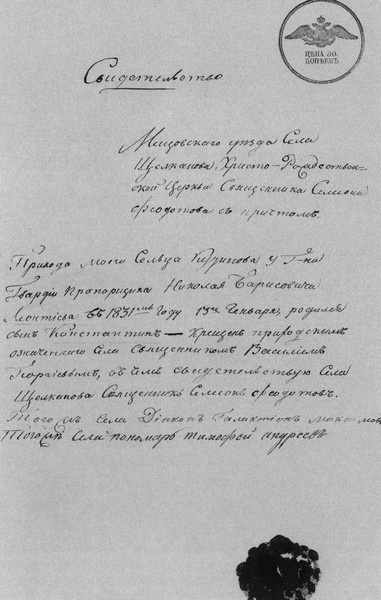 ЦѢНА 30.
КОПѢЕКЪ
Свидетельство
Мещовскаго уезда Села
Щелканова, Христо-Рождествен-
ской Церкви Священника Симеона
Федотова съ притомъ.
Прихода моего Сельца Кудинова у Г-на
Гвардіи Прапорщика Николая Барисовича
Леонтьева въ 1831мъ Году 13го Генваря, родился
сынъ Константинъ — Крещенъ приходскимъ
означеннаго Села Священникомъ Василіемъ
Георгіевымъ, въ чемъ свидетельствую Села
Щелканова Священникъ Симеонъ Федотовъ.
Того жъ Села Діаконъ Галактіонъ
Тогожъ Села пономарь тимофей андреевъ